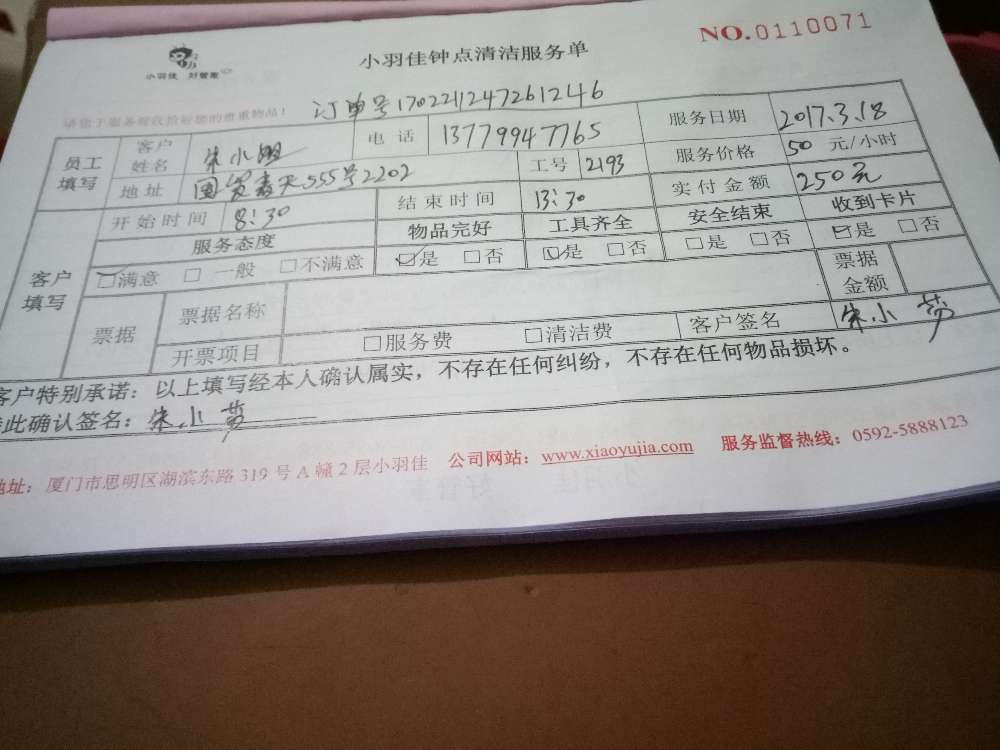 小羽佳 好管家
小羽佳钟点清洁服务单
NO.0110071
订单号1702211247261246
员工填写
客户姓名 朱小姐
电话 13779947765
服务日期 2017.3.18
地址 国贸春天555号2202
工号 2193
服务价格 50 元/小时
客户填写
开始时间 8:30
结束时间 13:30
实付金额 250元
服务态度 物品完好 工具齐全 安全结束 收到卡片
☑满意 □一般 □不满意 ☑是 □否 ☑是 □否 □是 □否 ☑是 □否
票据 票据名称 票据金额
开票项目 □服务费 □清洁费 客户签名 朱小
客户特别承诺：以上填写经本人确认属实，不存在任何纠纷，不存在任何物品损坏。
此确认签名：朱小
地址：厦门市思明区湖滨东路319号A幢2层小羽佳 公司网站：www.xiaoyujia.com 服务监督热线：0592-5888123